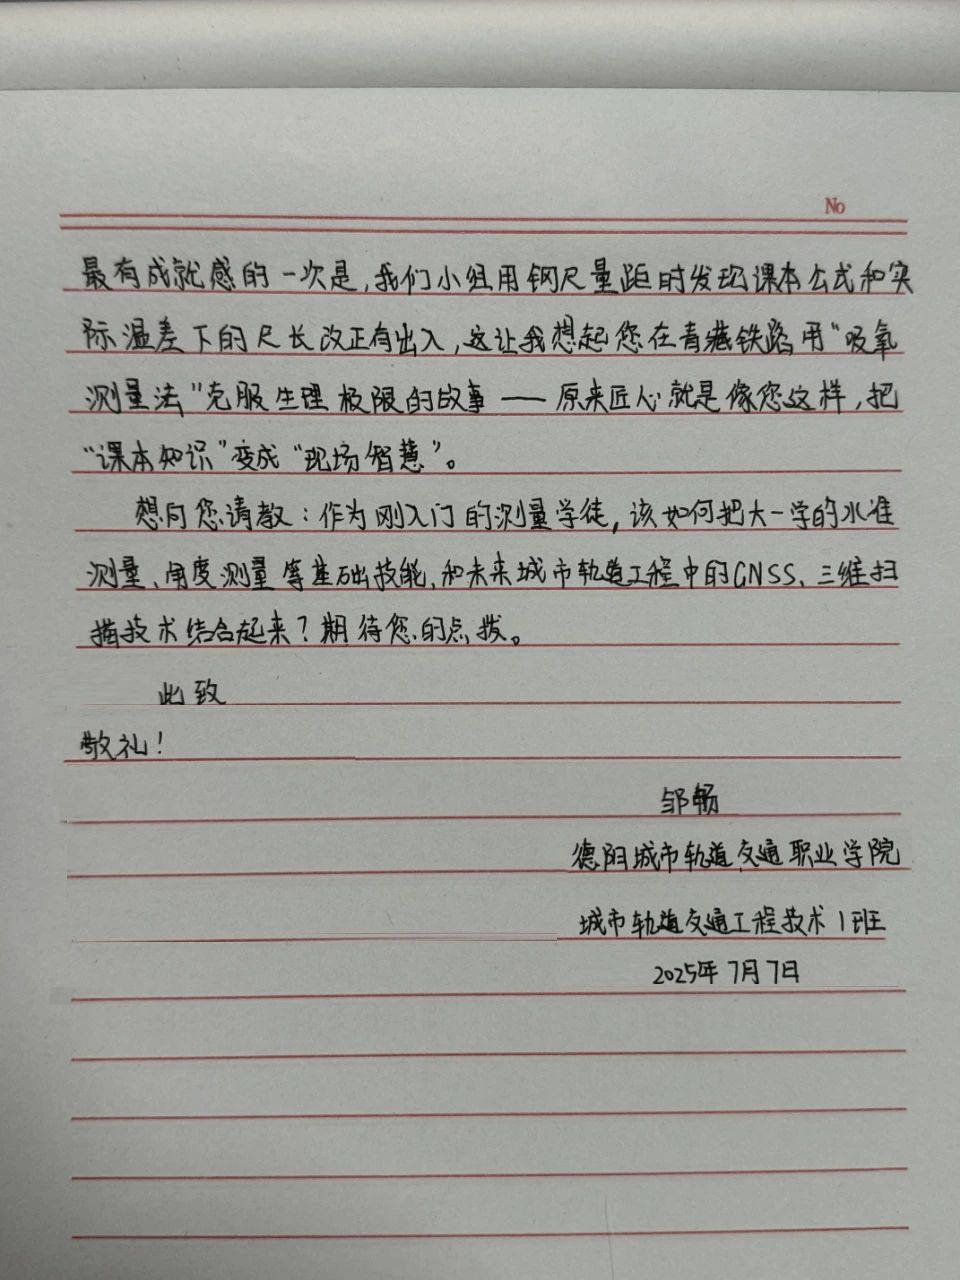 No
最有成就感的一次是,我们小组用钢尺量距时发现课本公式和实
际温差下的尺长改正有出入,这让我想起您在青藏铁路用“吸氧
测量法”克服生理极限的故事——原来匠心就是像您这样,把
“课本知识”变成“现场智慧”。
想向您请教:作为刚入门的测量学徒,该如何把大一学的水准
测量、角度测量等基础技能,和未来城市轨道工程中的GNSS、三维扫
描技术结合起来?期待您的点拨。
此致
敬礼!
邹畅
德阳城市轨道交通职业学院
城市轨道交通工程技术1班
2025年7月7日